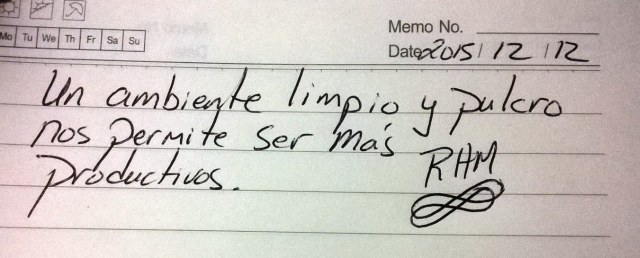 Memo No.
Mo Tu We Th Fr Sa Su
Date 2015/12/12
Un ambiente limpio y pulcro
nos permite ser más
productivos.
RHM